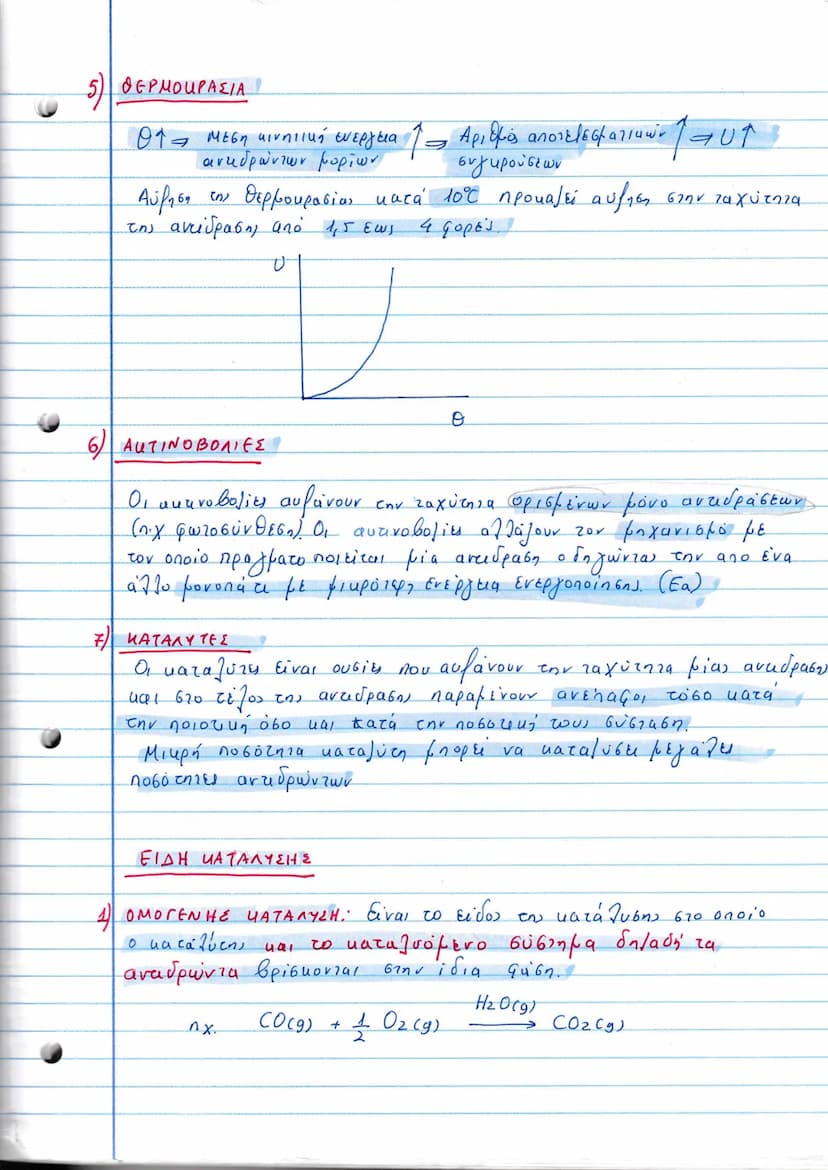 5) ΘΕΡΜΟΚΡΑΣΙΑ
θ↑ ⇒ Μέση κινητική ενέργεια ↑ ⇒ Αριθμός αποτελεσματικών ↑ ⇒ υ↑
αντιδρώντων μορίων συγκρούσεων
Αύξηση της θερμοκρασίας κατά 10℃ προκαλεί αύξηση στην ταχύτητα
της αντίδρασης από 1,5 εως 4 φορές.
υ
θ
6) ΑΚΤΙΝΟΒΟΛΙΕΣ
Οι ακτινοβολίες αυξάνουν την ταχύτητα ορισμένων μόνο αντιδράσεων
(π.χ φωτοσύνθεση). Οι ακτινοβολίες αλλάζουν τον μηχανισμό με
τον οποίο πραγματοποιείται μία αντίδραση οδηγώντας την απο ένα
άλλο μονοπάτι με μικρότερη ενέργεια ενεργοποίησης. (Ea)
7) ΚΑΤΑΛΥΤΕΣ
Οι καταλύτες είναι ουσίες που αυξάνουν την ταχύτητα μίας αντίδρασης
και στο τέλος της αντίδρασης παραμένουν ανέπαφοι τόσο κατά
την ποιοτική όσο και κατά την ποσοτική τους σύσταση.
Μικρή ποσότητα καταλύτη μπορεί να καταλύσει μεγάλες
ποσότητες αντιδρώντων
ΕΙΔΗ ΚΑΤΑΛΥΣΗΣ
1) ΟΜΟΓΕΝΗΣ ΚΑΤΑΛΥΣΗ: Είναι το είδος της κατάλυσης στο οποίο
ο καταλύτης και το καταλυόμενο σύστημα δηλαδή τα
αντιδρώντα βρίσκονται στην ίδια φάση.
π.χ. CO(g) + 1/2 O2(g) H2O(g) → CO2(g)